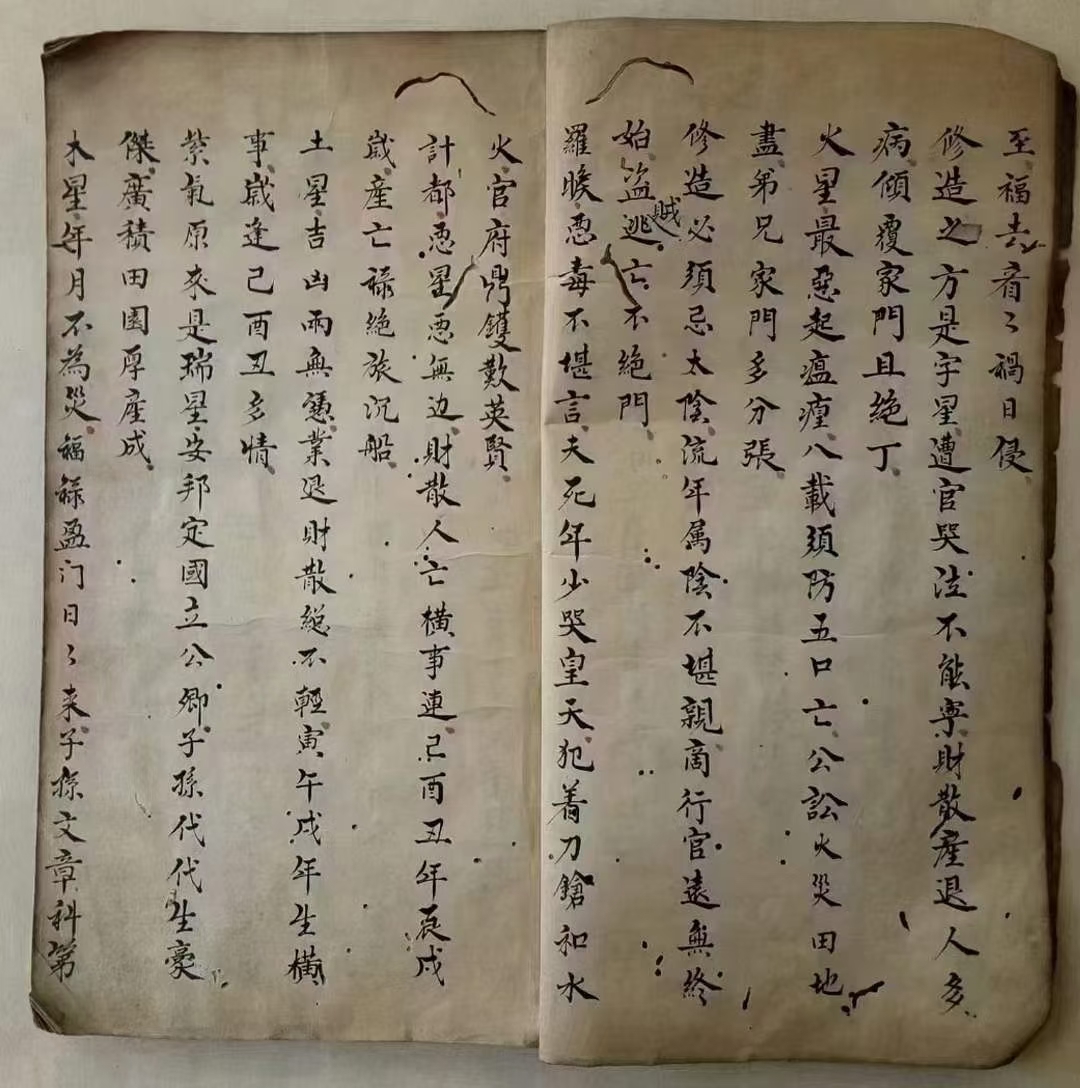 至福去看々禍日侵
修造之方是孛星遭官哭泣不能寧財散産退人多
病傾覆家門且絶丁
火星最惡起瘟瘽八載須防五口亡公訟火災田地
盡弟兄家門多分張
修造必須忌太陰流年属陰不堪親商行官遠無終
始盜賊逃亡不絕門
羅睺惡毒不堪言夫死年少哭皇天犯着刀鎗和水
火官府鼎鑊歎英賢
計都惡星惡無边財散人亡橫事連己酉丑年辰戌
歲産亡禄絶旅沉船
土星吉凶兩無憑業退財散総不輕寅午戌年生橫
事歲逢己酉丑多情
紫氣原來是瑞星安邦定國立公卿子孫代代生豪
傑廣積田園厚産成
木星年月不為災福禄盈门日々来子孫文章科第